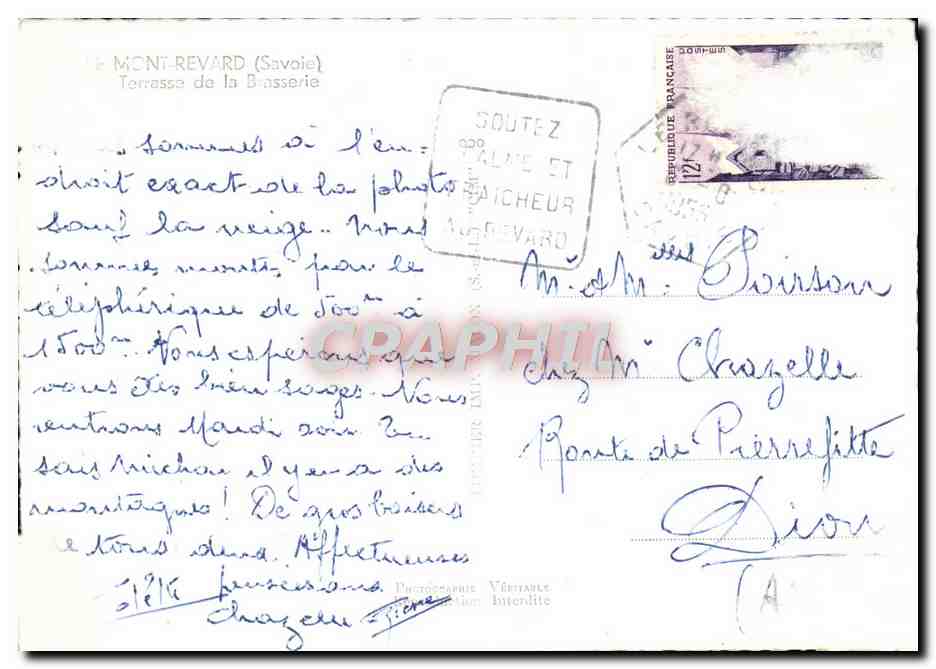 LE MONT-REVARD (Savoie)
Terrasse de la Brasserie
sommes à l'en-
droit exact de la photo
sauf la neige.. Nous
sommes montés par le
téléphérique de 500m à
1500m. Nous espérons que
vous êtes bien sages. Nous
rentrons Mardi soir. Tu
sais Michou il y en a des
montagnes! De gros baisers
de tous deux. Affectueuses
pensées
Chazelle Pierre
GOUTEZ
CALME ET
FRAICHEUR
AU REVARD
REPUBLIQUE FRANÇAISE
POSTES
12f
Mr et Melles Poirson
chez Mr Chazelle
Route de Pierrefitte
Diou
(A
CRAPHIL
PHOTOGRAPHIE VÉRITABLE
Reproduction Interdite